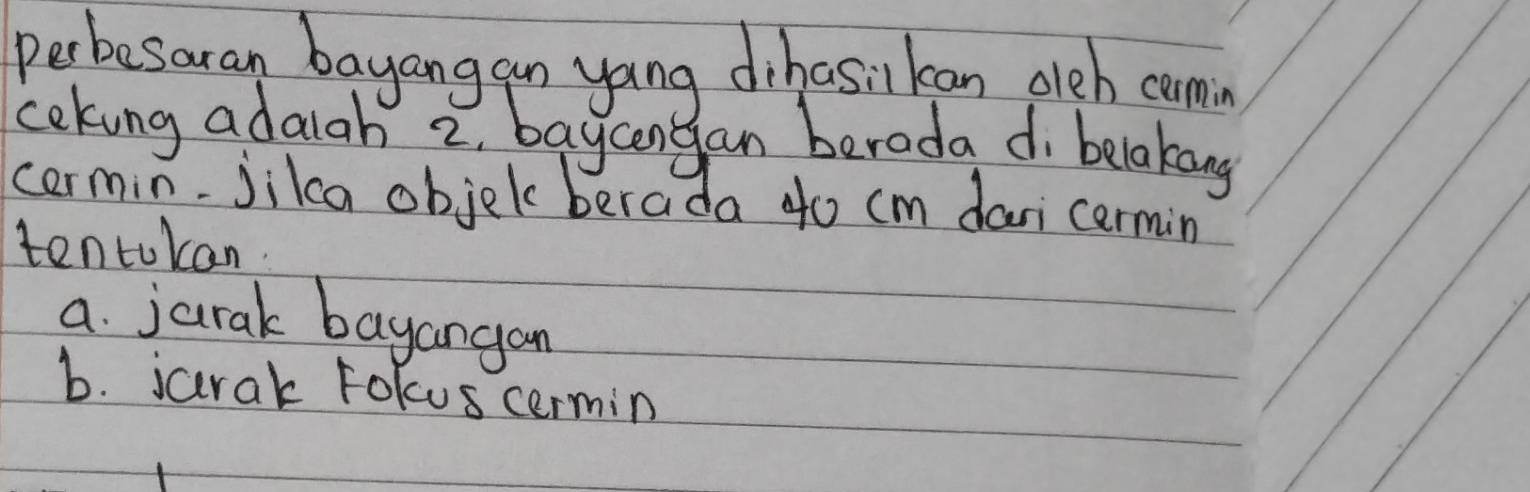 perbesaran bayangan yang dihasilkan oleh cermin
cekung adalah 2. bayangan berada di belakang
cermin. jika objek berada 40 cm dari cermin
tentukan.
a. jarak bayangan
b. jarak Fokus cermin